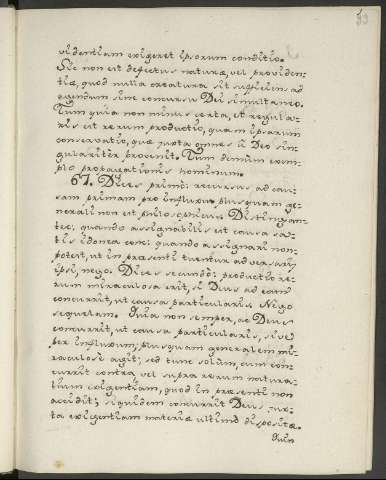 53
videntiam exigeret ipsorum conditio.
Sic non est defectus naturæ, vel providen-
tiæ, quod nulla creatura sit sufficiens ad
agendum sine concursu Dei simultaneo.
Tum quia non minus certa, et regula-
ris est rerum productio, quam ipsarum
conservatio, quæ juxta omnes à Deo sin-
gulariter provenit. Tum demum exem-
plo propagationis hominum.
67. Dices primò: recursus ad cau-
sam primam pro influxu plusquam ge-
nerali non est philosophicus. Distinguan-
tec, quando assignabilis est causa sa-
tis idonea conc: quando assignari non-
potest, ut in præsenti tuentur adversarij
ipsi, nego. Dices secundò: productio re-
rum miraculosa erit, si Deus ad eam
concurrit, ut causa particularis. Nego
sequelam. Quia non semper, ac Deus
concurrit, ut causa particularis, sive
per influxum, plusquam generalem mi-
raculose agit; sed tunc solùm, cum con-
currit contra, vel supra rerum natura-
lium exigentiam, quod in præsenti non
accidit; siquidem concurrit Deus jux-
ta exigentiam materiæ ultimò dispositæ.
Quin